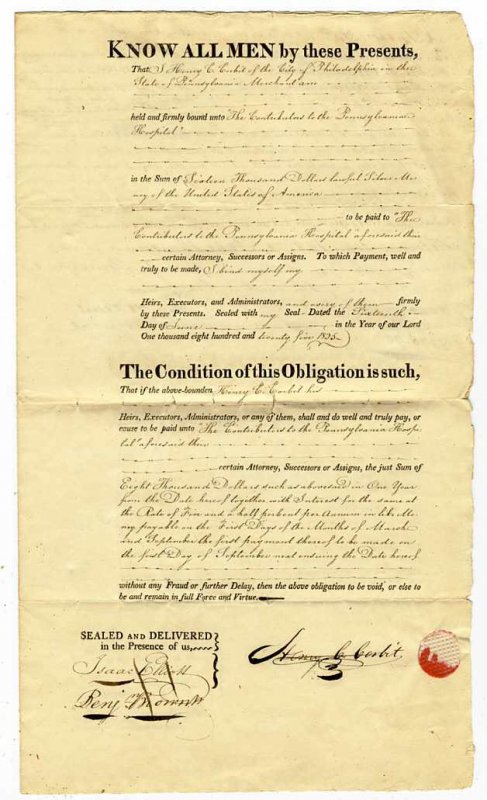 KNOW ALL MEN by these Presents,
That I Henry C. Corbit of the City of Philadelphia in the
State of Pennsylvania Merchant am
held and firmly bound unto "The Contributors to the Pennsylvania
Hospital"
in the Sum of Sixteen Thousand Dollars lawful Silver Mo-
ney of the United States of America
to be paid to "The
Contributors to the Pennsylvania Hospital" aforesaid their
certain Attorney, Successors or Assigns. To which Payment, well and
truly to be made, I bind myself my
Heirs, Executors, and Administrators, and every of them firmly
by these Presents. Sealed with my Seal - Dated the Sixteenth
Day of June in the Year of our Lord
One thousand eight hundred and twenty five 1825
The Condition of this Obligation is such,
That if the above-bounden Henry C. Corbit his
Heirs, Executors, Administrators, or any of them, shall and do well and truly pay, or
cause to be paid unto "The Contributors to the Pennsylvania Hospi-
tal" aforesaid their
certain Attorney, Successors or Assigns, the just Sum of
Eight Thousand Dollars such as abovesaid in One Year
from the Date hereof together with Interest for the same at
the Rate of Five and a half per Cent per Annum in like Mo-
ney payable on the First Days of the Months of March
and September the first payment thereof to be made on
the first Day of September next ensuing the Date hereof
without any Fraud or further Delay, then the above obligation to be void, or else to
be and remain in full Force and Virtue.
SEALED AND DELIVERED
in the Presence of us,
Henry C. Corbit
Isaac Elliott
Benj